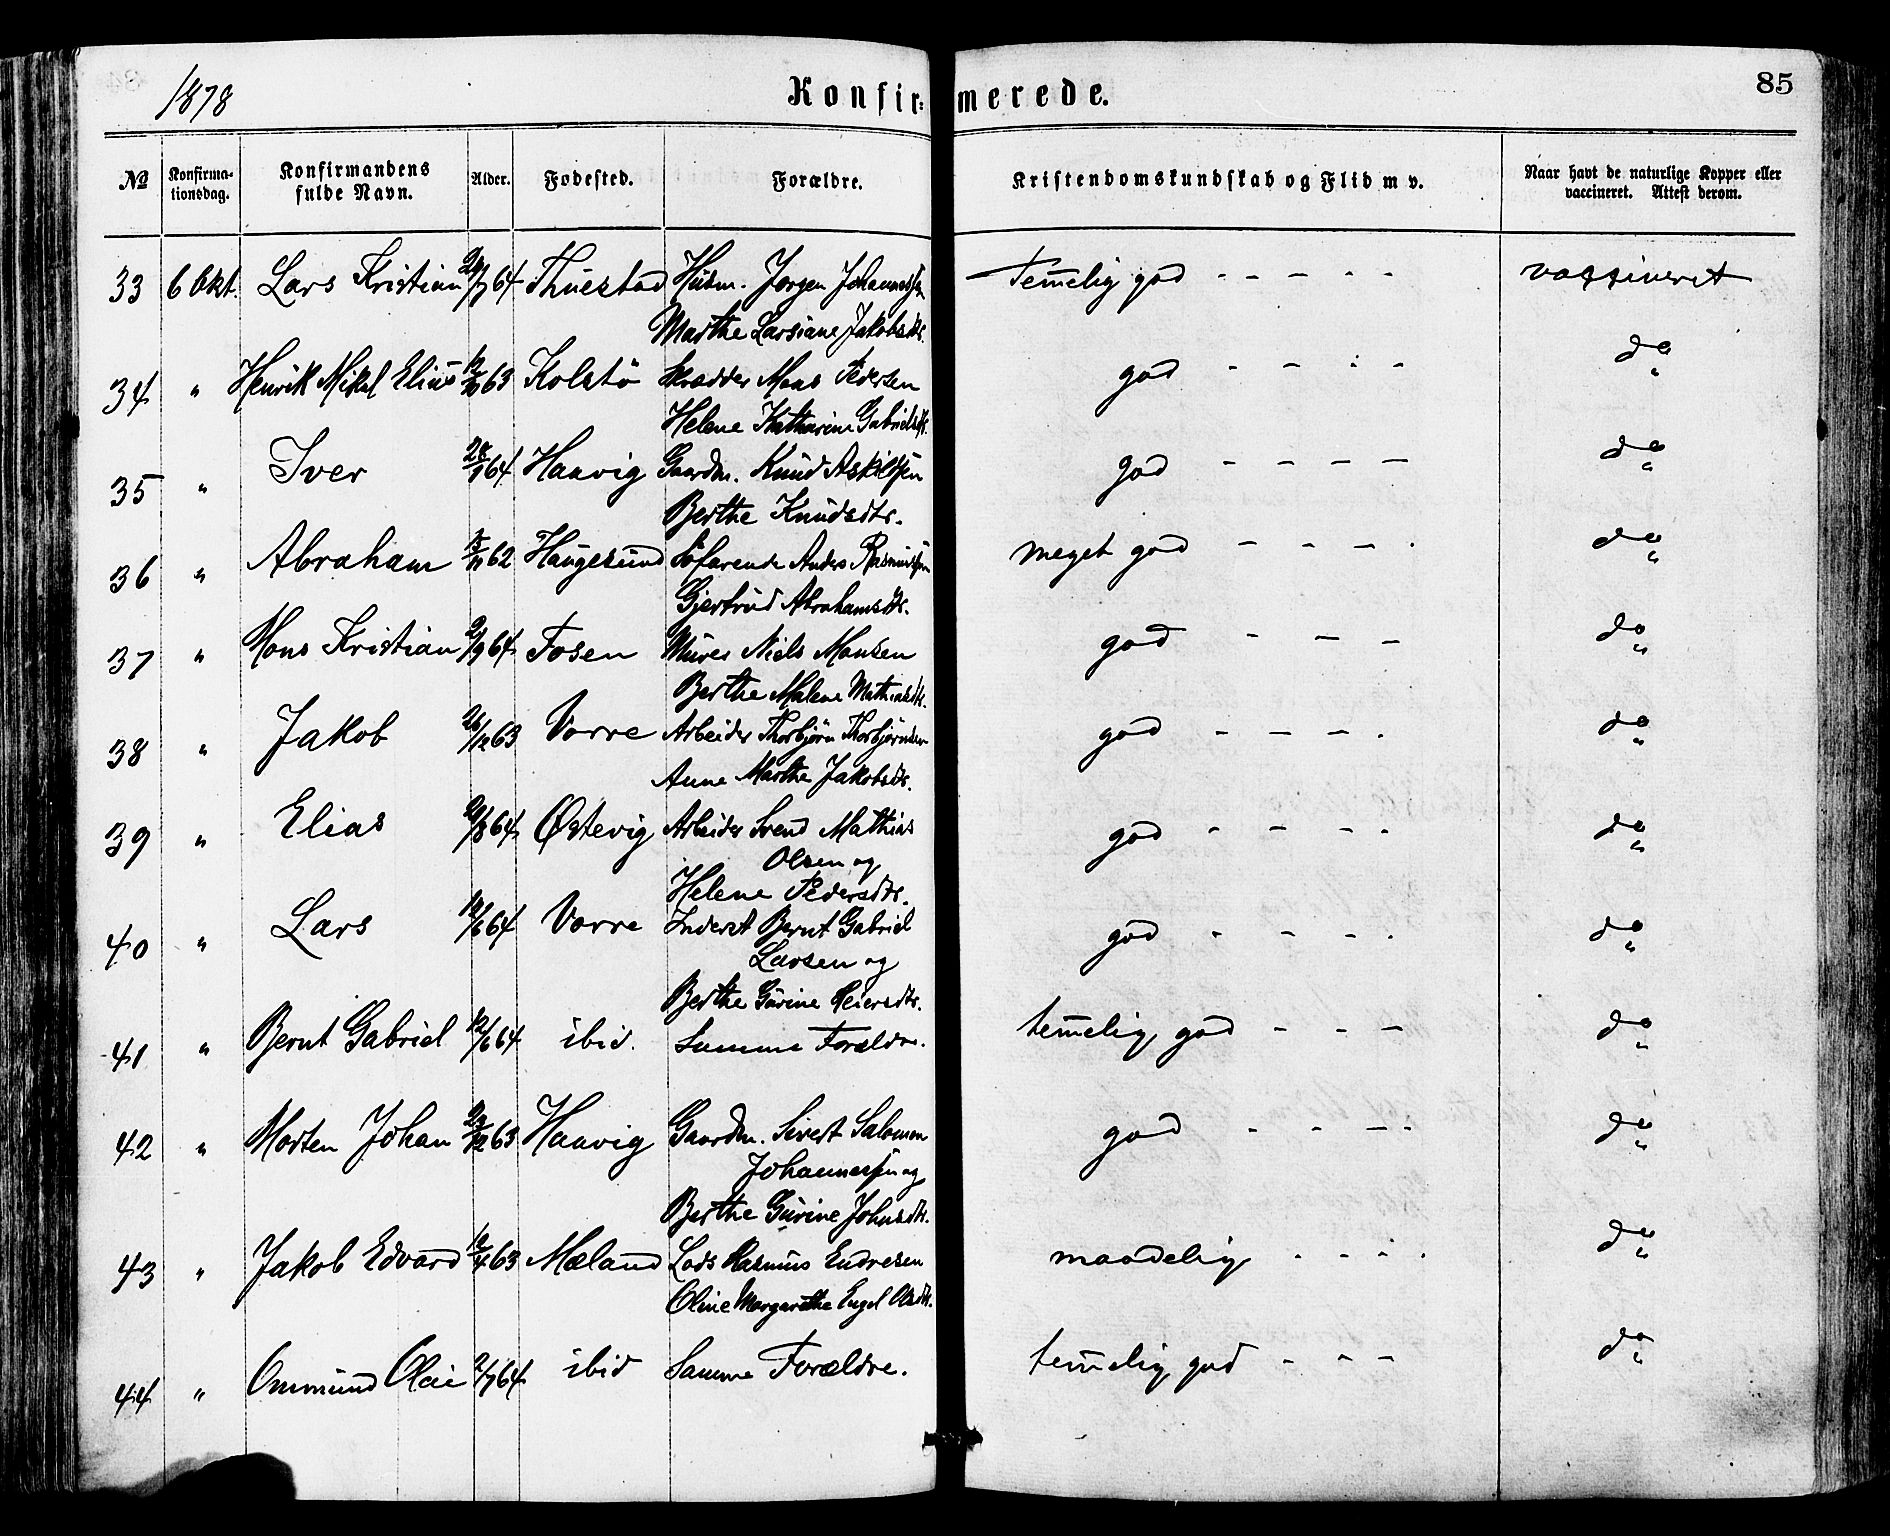 1878 Konfir= merede. 85
No Konfirma-tionsdag. Konfirmandens fulde Navn. Alder. Fødested. Forældre. Kristendomskundskab og Flid m v. Naar havt de naturlige Kopper eller vaccineret. Attest derom.
33 6 Okt. Lars Kristian /7 64 Thuestad Husm. Jørgen Johannessen Temelig god - - - - - vaxsineret
Marthe Larsiane Jakobsdtr.
34 " Henrik Mikal Elius 12/10 63 Kolstø Skrædder Mons Pedersen god - - - - do "
Helene Katharine Gabrielsdtr.
35 " Iver 28/1 64 Haavig Gaardm. Knud Askildsen god - - - - do "
Berthe Knudsdtr.
36 " Abraham 62 Haugesund Søfarende Anders Rasmussen meget god - - - - do "
Gjertrud Abrahamsdtr.
37 " Mons Kristian 2/9 64 Fosen Murer Niels Monsen god - - - do "
Berthe Malene Mathiasdtr.
38 " Jakob 26/12 63 Vorre Arbeider Thorbjørn Thorbjørnsen god - - - - do "
Anne Marthe Jakobsdtr.
39 " Elias /8 64 Østevig Arbeider Svend Mathias god - - - - do "
Olsen og
Helene Pedersdtr.
40 " Lars 12/6 64 Vorre Inderst Bernt Gabriel god - - - - do "
Larsen og
Berthe Gurine Reiersdtr.
41 " Bernt Gabriel 12/6 64 ibid. Samme Forældre. temelig god - - - do "
42 " Morten Johan 23/12 63 Haavig Gaardm. Sivert Salomon god - - - - do "
Johannessen og
Berthe Gurine Johnsdtr.
43 " Jakob Edvard 12/4 63 Mæland Lods Rasmus Endresen maadelig - - - - do "
Oline Margarethe Engel Olsdtr.
44 " Ommund Olai 2/7 64 ibid Samme Forældre. temelig god - - - do "